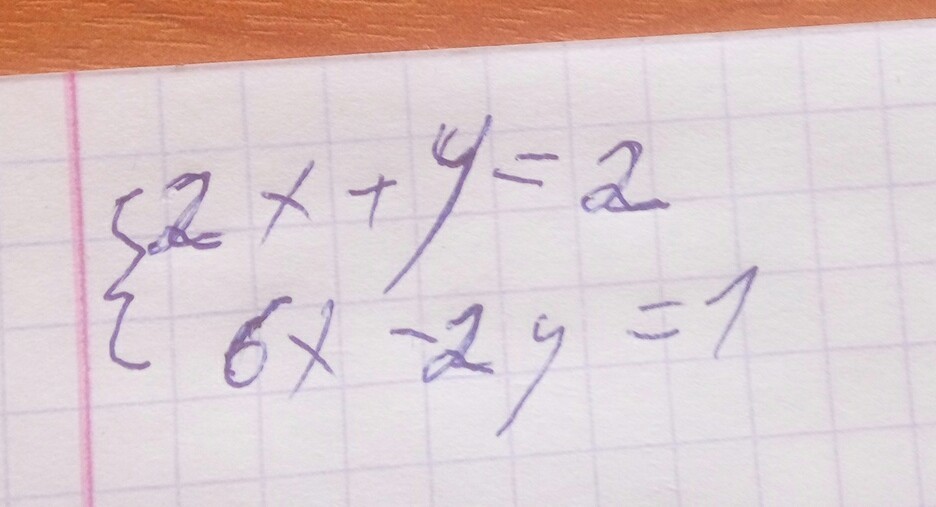 {2x+y=2
6x-2y=1